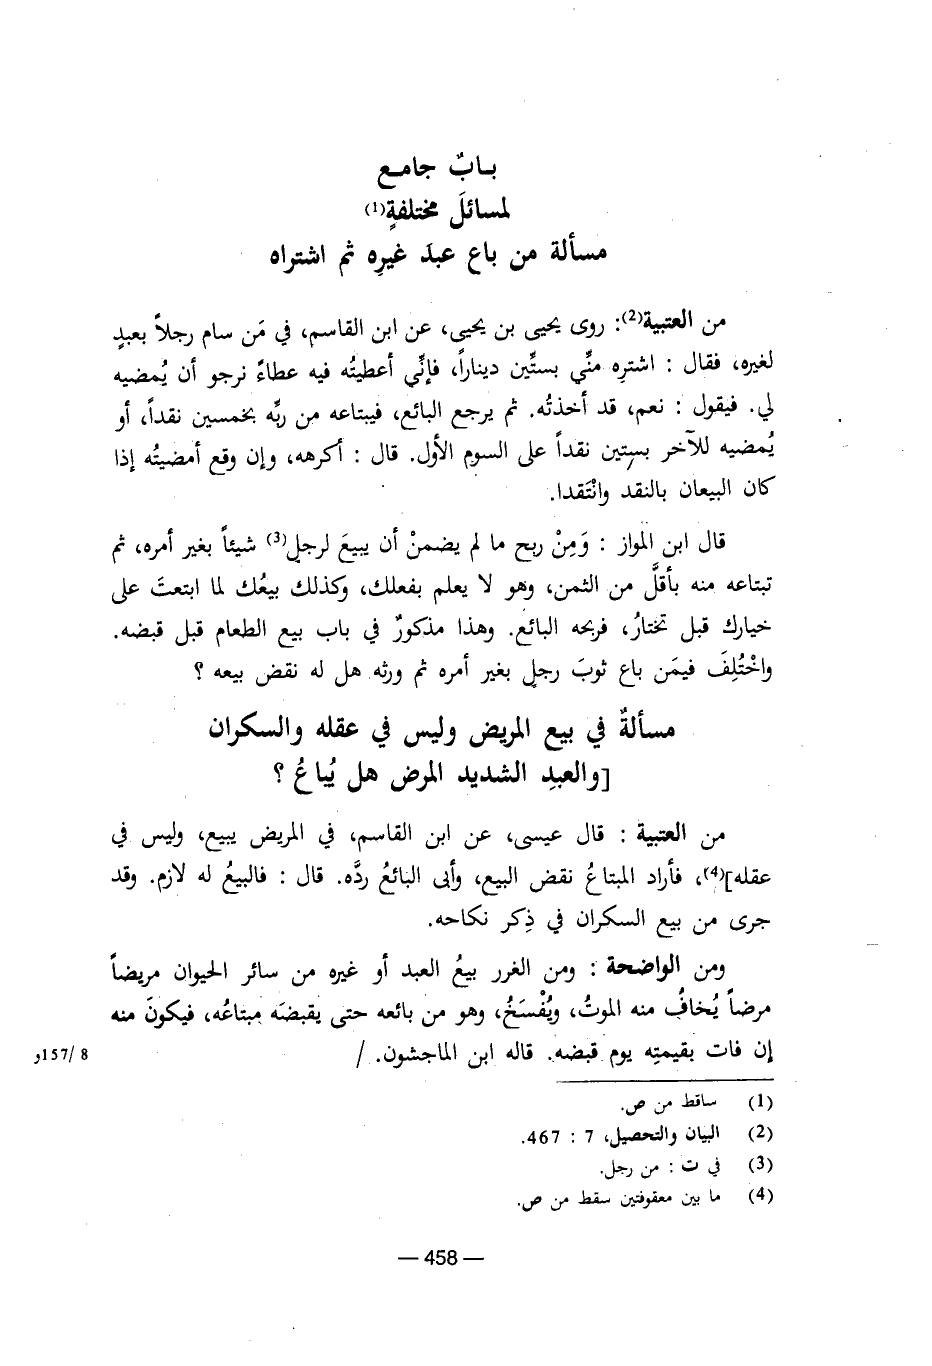 بـابٌ جامـع
لمسائلَ مختلفةٍ(1)
مسألة من باع عبدَ غيرِه ثم اشتراه
من العتبية(2): روى يحيى بن يحيى، عن ابن القاسم، في مَن سام رجلاً بعبدٍ
لغيره، فقال : اشترِه منِّي بستِّين ديناراً، فإنِّي أعطيتُه فيه عطاءً نرجو أن يُمضيه
لي. فيقول : نعم، قد أخذتُه. ثم يرجع البائع، فيبتاعه من ربِّه بخمسين نقداً، أو
يُمضيه للآخر بستين نقداً على السوم الأول. قال : أكرهه، وإن وقع أمضيتُه إذا
كان البيعان بالنقد وانْتَقدا.
قال ابن المواز : وَمِنْ ربح ما لم يضمنْ أن يبيعَ لرجلٍ(3) شيئاً بغير أمره، ثم
تبتاعه منه بأقلَّ من الثمن، وهو لا يعلم بفعلك، وكذلك بيعُك لما ابتعتَ على
خيارك قبل تختارُ، فربحه البائع. وهذا مذكورٌ في باب بيع الطعام قبل قبضه.
واخْتُلِفَ فيمَن باع ثوبَ رجلٍ بغير أمره ثم ورثه هل له نقض بيعه ؟
مسألةٌ في بيع المريض وليس في عقله والسكران
[والعبدِ الشديد المرض هل يُباعُ ؟
من العتبية : قال عيسى، عن ابن القاسم، في المريض يبيع، وليس في
عقله](4)، فأراد المبتاعُ نقض البيع، وأبى البائعُ ردَّه. قال : فالبيعُ له لازم. وقد
جرى من بيع السكران في ذِكر نكاحه.
ومن الواضحة : ومن الغرر بيعُ العبد أو غيره من سائر الحيوان مريضاً
مرضاً يُخافُ منه الموتُ، ويُفْسَخُ، وهو من بائعه حتى يقبضَه مبتاعُه، فيكونَ منه
إن فات بقيمتِه يوم قبضه. قاله ابن الماجشون. /
8 /157و
(1) ساقط من ص.
(2) البيان والتحصيل، 7 : 467.
(3) في ت : من رجل.
(4) ما بين معقوفتين سقط من ص.
— 458 —